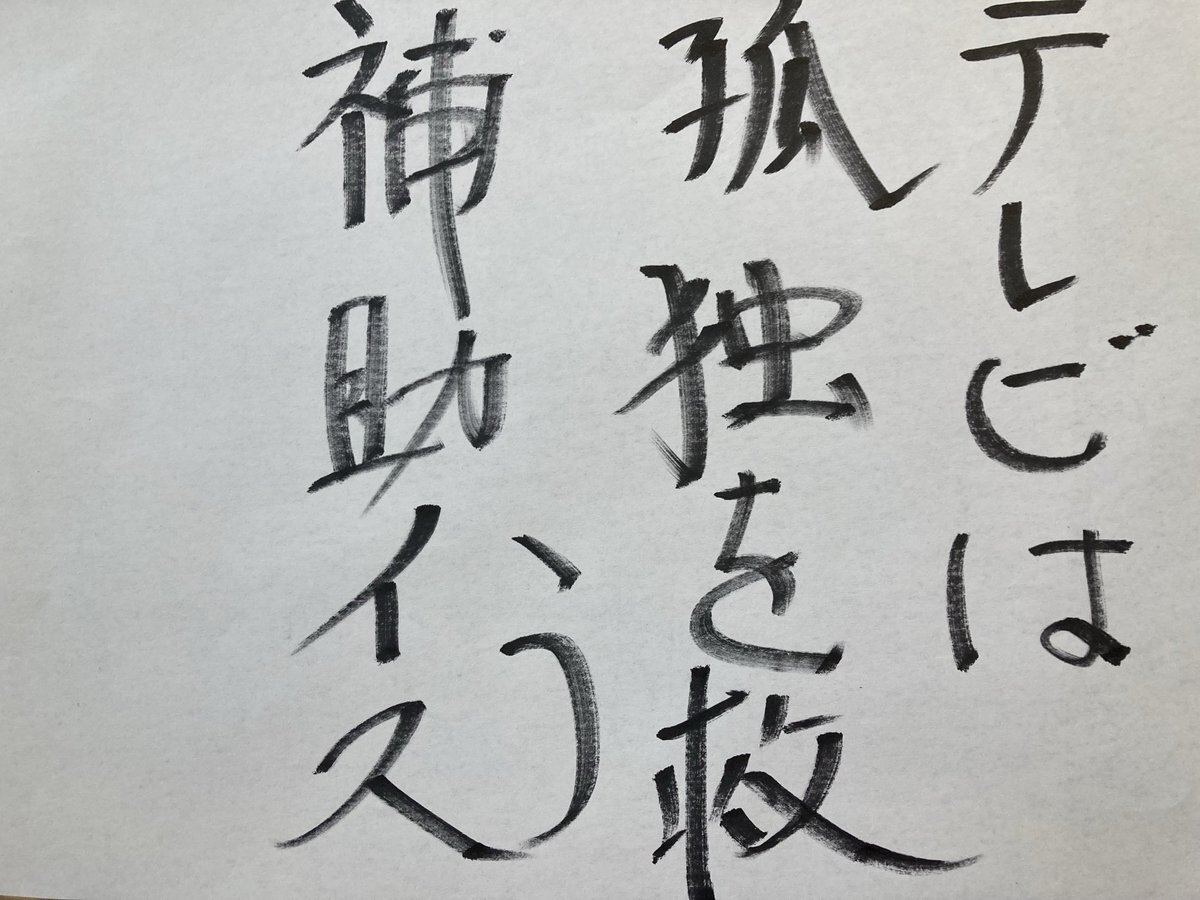 テレビは
孤独を救う
補助イス